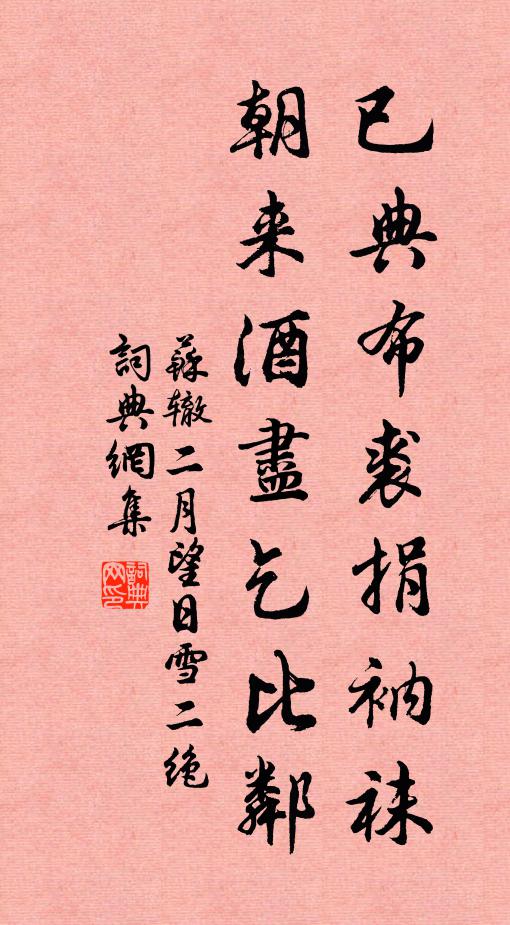 已典布裘捐衲袜
朝来酒盡乞比鄰
蘇辙二月望日雪二绝
詞典網集
詞典網印